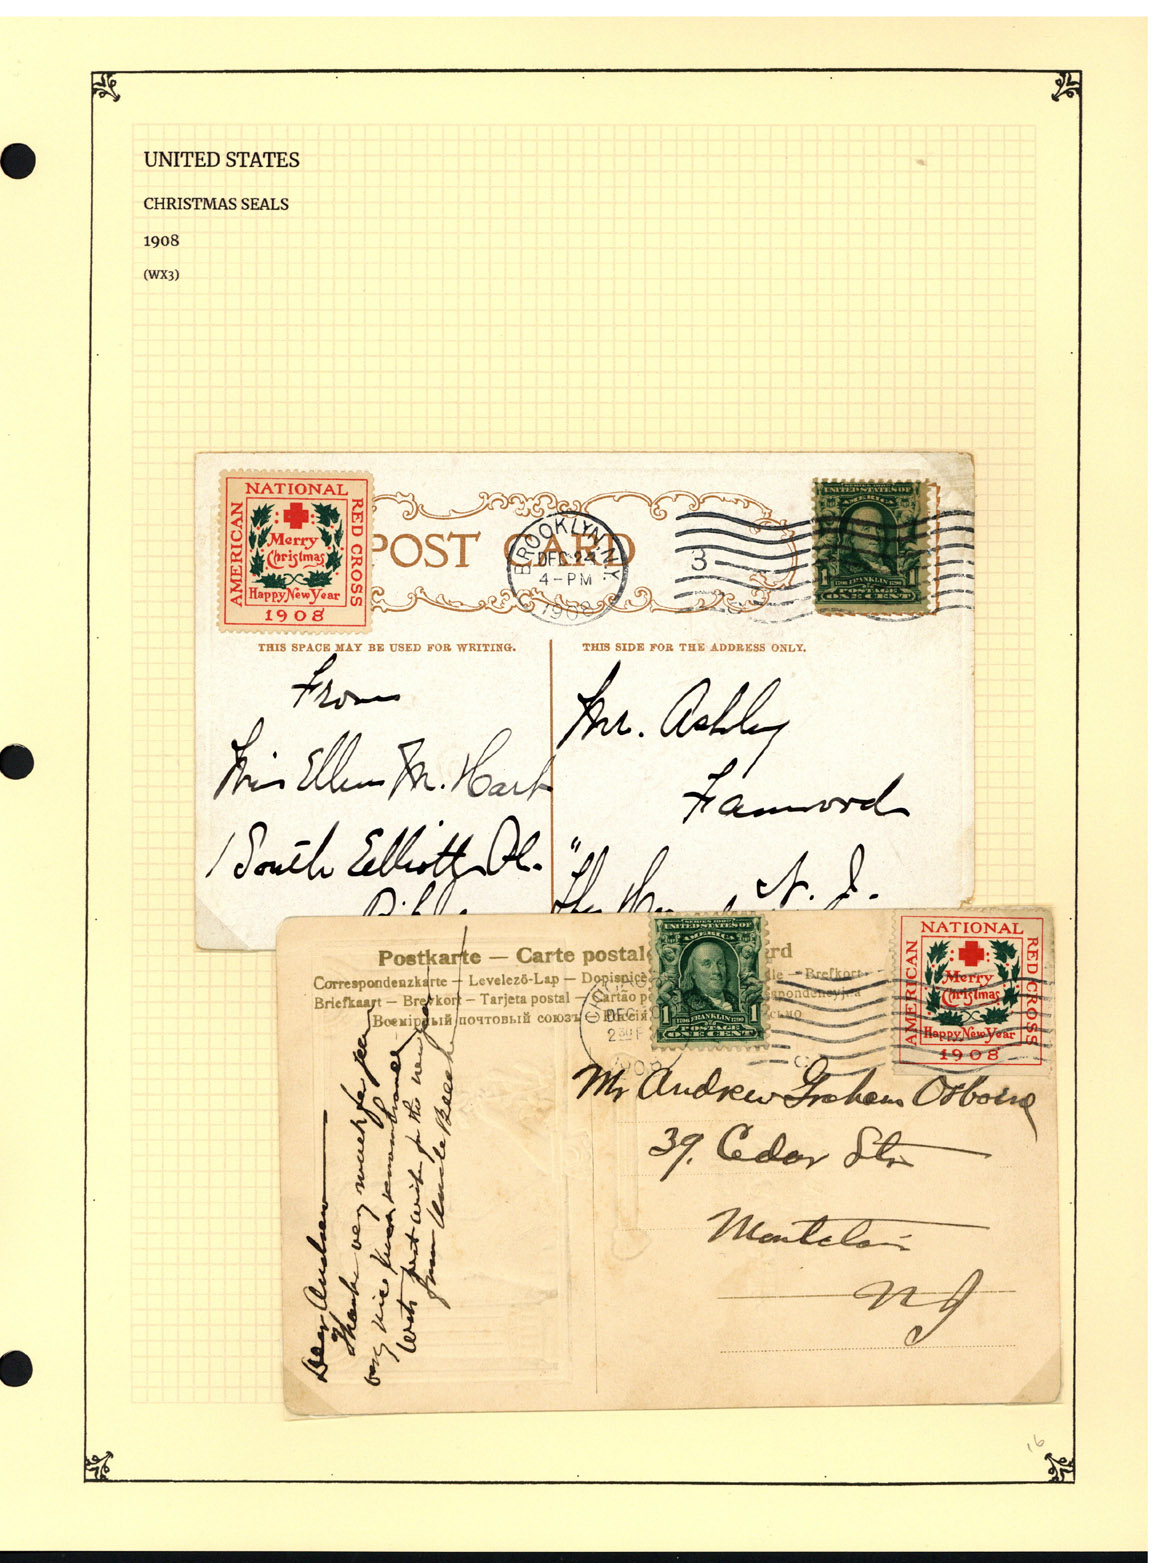 UNITED STATES
CHRISTMAS SEALS
1908
(WX3)
AMERICAN
NATIONAL
RED CROSS
Merry
Christmas
Happy New Year
1908
POST CARD
BROOKLYN, N.Y.
DEC 24
4-PM
1908
3
UNITED STATES OF
AMERICA
1 FRANKLIN 1
POSTAGE
ONE CENT
THIS SPACE MAY BE USED FOR WRITING.
THIS SIDE FOR THE ADDRESS ONLY.
From
Miss Ellen M. Hart
1 South Elliott Pl.
Mr. Ashley
Fanwood
N. J.
Postkarte — Carte postale
Correspondenzkarte — Levelező-Lap — Dopisnice — Brefkort
Briefkaart — Brevkort — Tarjeta postal — Cartão
Всемірный почтовый союзъ
SERIES 1902
UNITED STATES OF
AMERICA
1 FRANKLIN 1
POSTAGE
ONE CENT
DEC
1908
AMERICAN
NATIONAL
RED CROSS
Merry
Christmas
Happy New Year
1908
Mr Andrew Graham Osborne
39. Cedar Str
Montclair
N J
Dear Andrew
Thanks very much for your
very nice Xmas remembrance
With best wishes for the new year
from Uncle
16